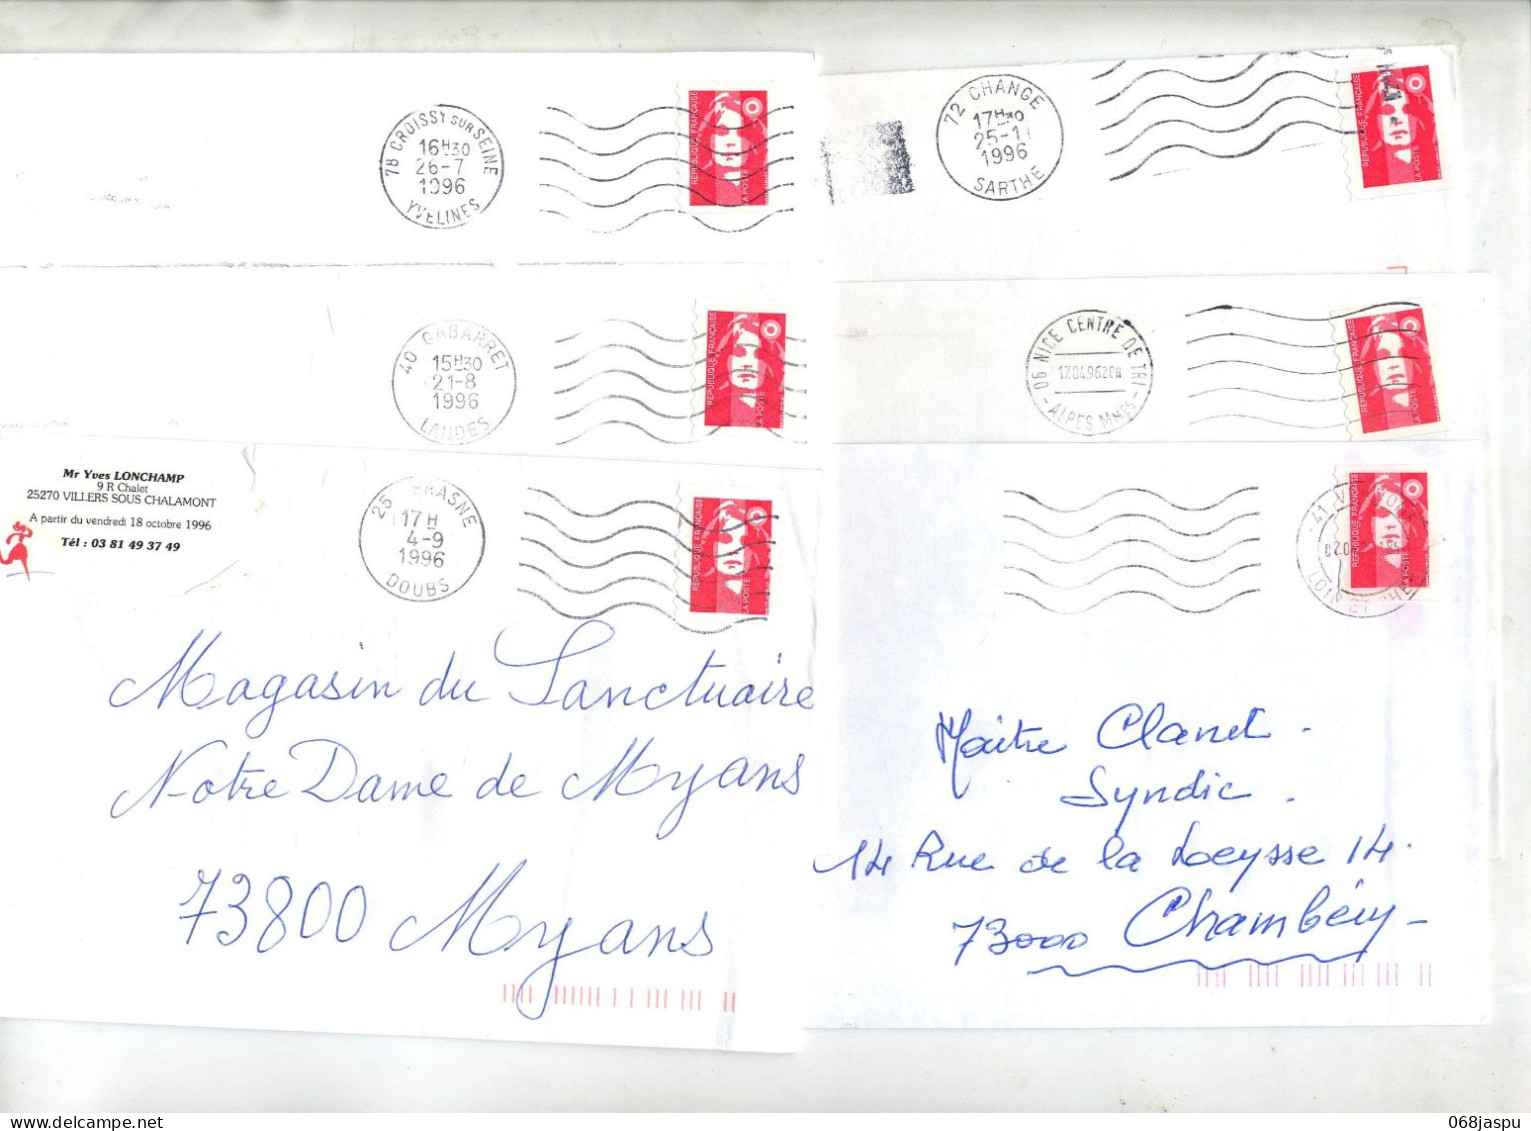 78 CROISSY SUR SEINE
16H30
26-7
1996
YVELINES
RÉPUBLIQUE FRANÇAISE
LA POSTE
72 CHANGE
17H30
25-1
1996
SARTHE
RÉPUBLIQUE FRANÇAISE
LA POSTE
40 GABARRET
15H30
21-8
1996
LANDES
RÉPUBLIQUE FRANÇAISE
LA POSTE
06 NICE CENTRE DE TRI
17.04.96 20H
ALPES MMES
RÉPUBLIQUE FRANÇAISE
LA POSTE
Mr Yves LONCHAMP
9 R Chalet
25270 VILLERS SOUS CHALAMONT
A partir du vendredi 18 octobre 1996
Tél : 03 81 49 37 49
25 FRASNE
17H
4-9
1996
DOUBS
RÉPUBLIQUE FRANÇAISE
LA POSTE
Magasin du Sanctuaire
Notre Dame de Myans
73800 Myans
41
RÉPUBLIQUE FRANÇAISE
LA POSTE
Maître Clanet.
Syndic.
14 Rue de la Leysse 14.
73000 Chambéry-
Delcampe.net
068jaspu